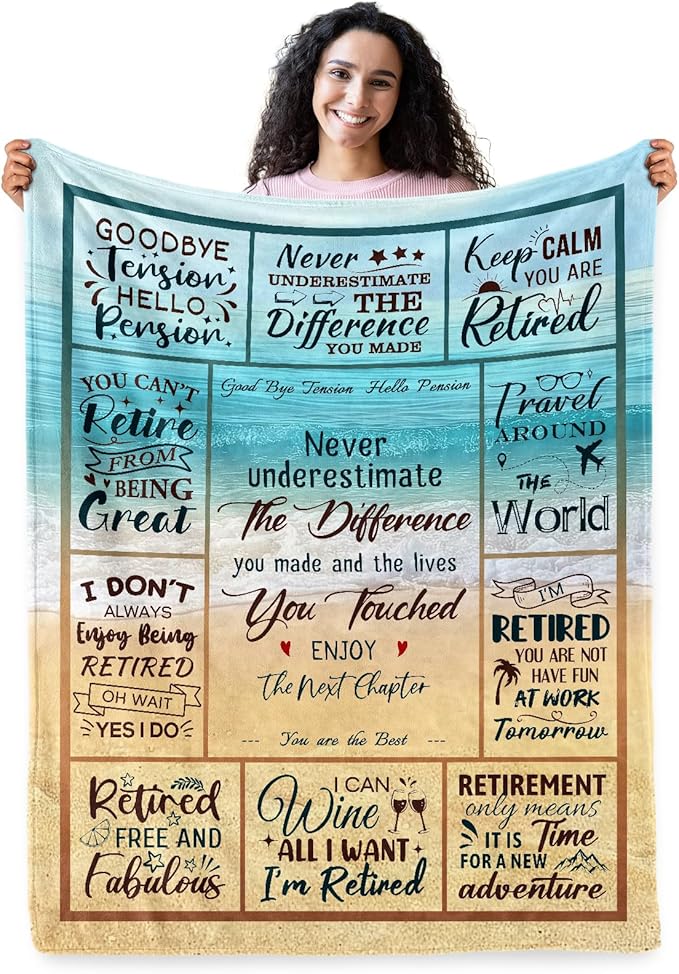 GOODBYE
Tension
HELLO
Pension
Never
UNDERESTIMATE
THE
Difference
YOU MADE
Keep CALM
YOU ARE
Retired
YOU CAN'T
Retire
FROM
BEING
Great
Good Bye Tension Hello Pension
Never
underestimate
The Difference
you made and the lives
You Touched
ENJOY
The Next Chapter
--- You are the Best ---
Travel
AROUND
THE
World
I DON'T
ALWAYS
Enjoy Being
RETIRED
OH WAIT
YES I DO
I'M
RETIRED
YOU ARE NOT
HAVE FUN
AT WORK
Tomorrow
Retired
FREE AND
Fabulous
I CAN
Wine
ALL I WANT
I'm Retired
RETIREMENT
only means
IT IS Time
FOR A NEW
adventure